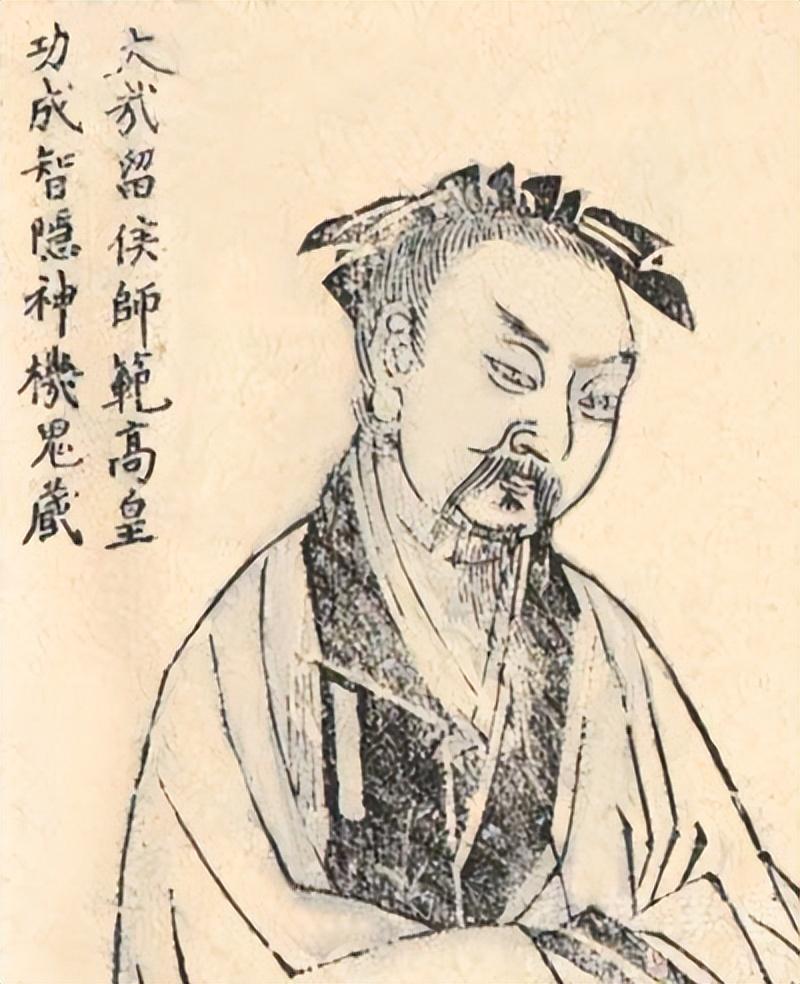 大哉留侯師範高皇
功成智隱神機鬼藏